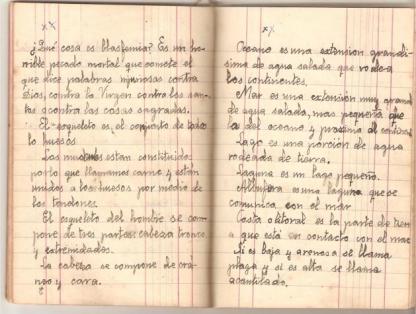 xx
¿Qué cosa es blasfemia? Es un ho-
rrible pecado mortal que comete el
que dice palabras injuriosas contra
Dios, contra la Virgen contra los san-
tos o contra las cosas sagradas.
El esqueleto es el conjunto de todos
lo huesos
Los musculos estan constituidos
por lo que llamamos carne y están
unidos a los huesos por medio de
los tendones.
El esqueleto del hombre se com-
pone de tres partes: cabeza tronco
y extremidades.
La cabeza se compone de crá-
neo y cara.
xx
Oceano es una extension grandi-
sima de agua salada que rodea
los continentes.
Mar es una extensión muy grande
de agua salada, mas pequeña que
la del oceano y proxima al continente
Lago es una porción de agua
rodeada de tierra.
Laguna es un lago pequeño.
Albufera es una laguna que se
comunica con el mar.
Costa o litoral es la parte de tierra
que está en contacto con el mar
Si es baja y arenosa se llama
playa y si es alta se llama
acantilado.